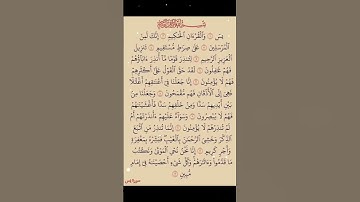 بسم الله الرحمن الرحيم
يس ۝ وَالْقُرْءَانِ الْحَكِيمِ ۝ إِنَّكَ لَمِنَ
الْمُرْسَلِينَ ۝ عَلَىٰ صِرَٰطٍ مُّسْتَقِيمٍ ۝ تَنزِيلَ
الْعَزِيزِ الرَّحِيمِ ۝ لِتُنذِرَ قَوْمًا مَّا أُنذِرَ ءَابَاؤُهُمْ
فَهُمْ غَٰفِلُونَ ۝ لَقَدْ حَقَّ الْقَوْلُ عَلَىٰ أَكْثَرِهِمْ
فَهُمْ لَا يُؤْمِنُونَ ۝ إِنَّا جَعَلْنَا فِي أَعْنَٰقِهِمْ أَغْلَٰلًا
فَهِيَ إِلَى الْأَذْقَانِ فَهُم مُّقْمَحُونَ ۝ وَجَعَلْنَا مِن
بَيْنِ أَيْدِيهِمْ سَدًّا وَمِنْ خَلْفِهِمْ سَدًّا فَأَغْشَيْنَٰهُمْ
فَهُمْ لَا يُبْصِرُونَ ۝ وَسَوَاءٌ عَلَيْهِمْ ءَأَنذَرْتَهُمْ أَمْ
لَمْ تُنذِرْهُمْ لَا يُؤْمِنُونَ ۝ إِنَّمَا تُنذِرُ مَنِ اتَّبَعَ
الذِّكْرَ وَخَشِيَ الرَّحْمَٰنَ بِالْغَيْبِ فَبَشِّرْهُ بِمَغْفِرَةٍ
وَأَجْرٍ كَرِيمٍ ۝ إِنَّا نَحْنُ نُحْيِ الْمَوْتَىٰ وَنَكْتُبُ
مَا قَدَّمُوا وَءَاثَٰرَهُمْ وَكُلَّ شَيْءٍ أَحْصَيْنَٰهُ فِي إِمَامٍ
مُّبِينٍ ۝
سورة يس